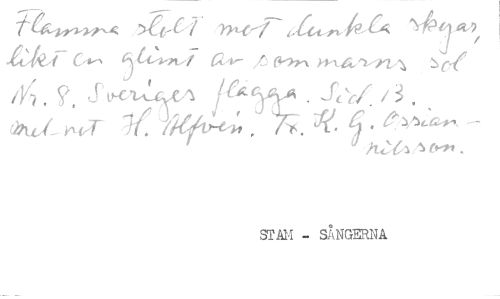 Flamma stolt mot dunkla skyar,
likt en glimt av sommarns sol
Nr. 8. Sveriges flagga. Sid. 13.
mel-not H. Alfvén. Tx. K. G. Ossian-
nilsson.
STAM - SÅNGERNA